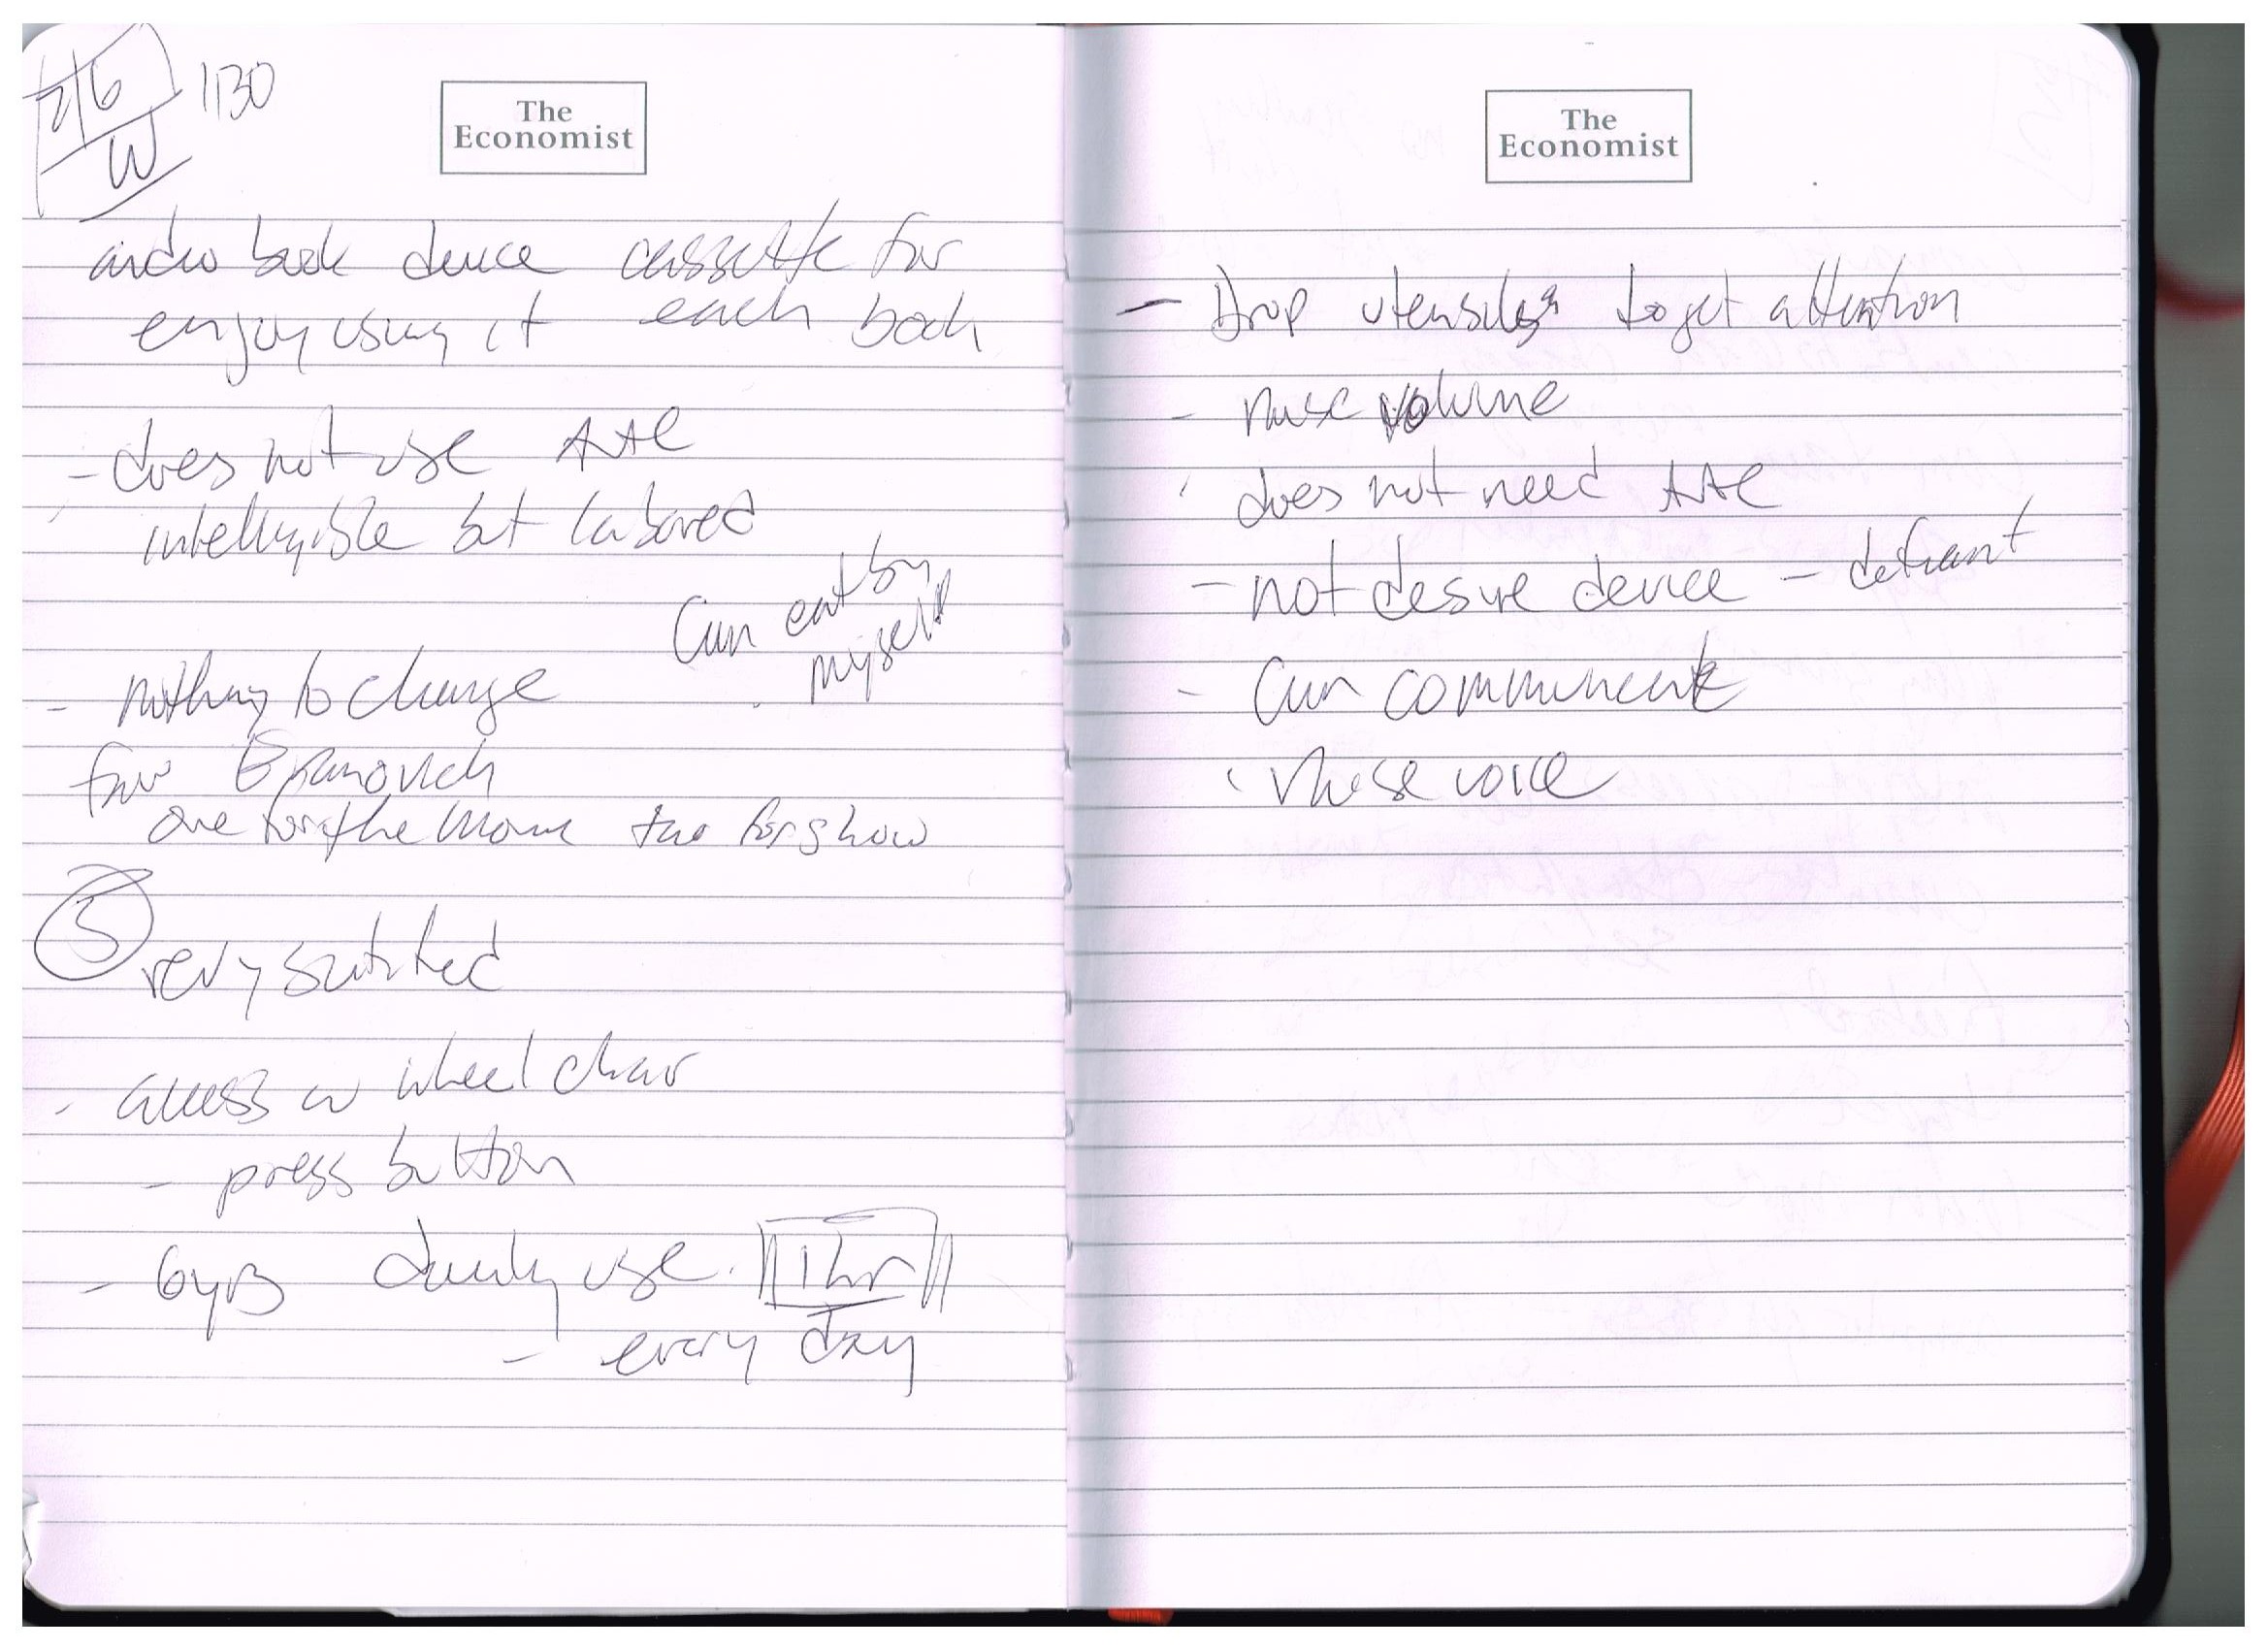 2/6
W
1130
The
Economist
audio book device cassette for
enjoy using it each book
- does not use AAC
intelligible but labored
Can eat by
myself
- nothing to change
for
one for the money two for show
5
very satisfied
- access w wheel chair
- press button
- 6 yrs daily use. 1 hr
- every day
The
Economist
- Drop utensils to get attention
- raise volume
does not need AAC
- not desire device - defiant
- Can communicate
raise voice